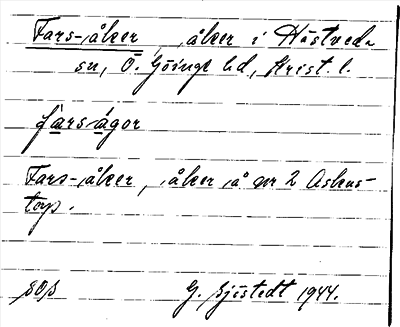 Fars-åker, åker i Hästveda
sn, Ö. Göinge hd, Krist. l.
farságor
Fars-åker, åker å nr 2 Askus-
torp.
sos G. Sjöstedt 1944.